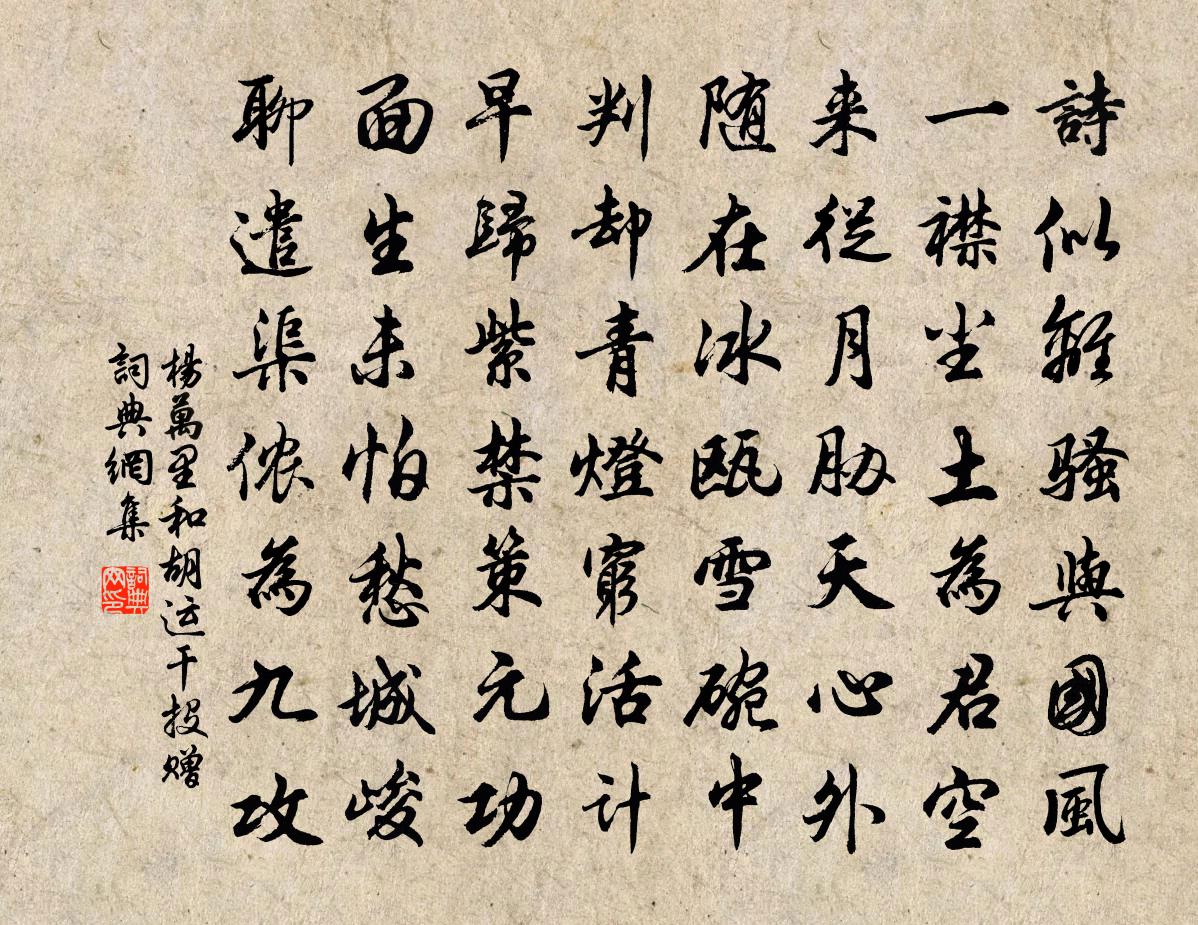 詩似離騷與國風
一襟尘土為君空
来從月胁天心外
随在冰瓯雪碗中
判却青燈窮活计
早歸紫禁策元功
面生未怕愁城峻
聊遣渠侬為九攻
楊萬里和胡运干投赠
詞典網集
詞典网印